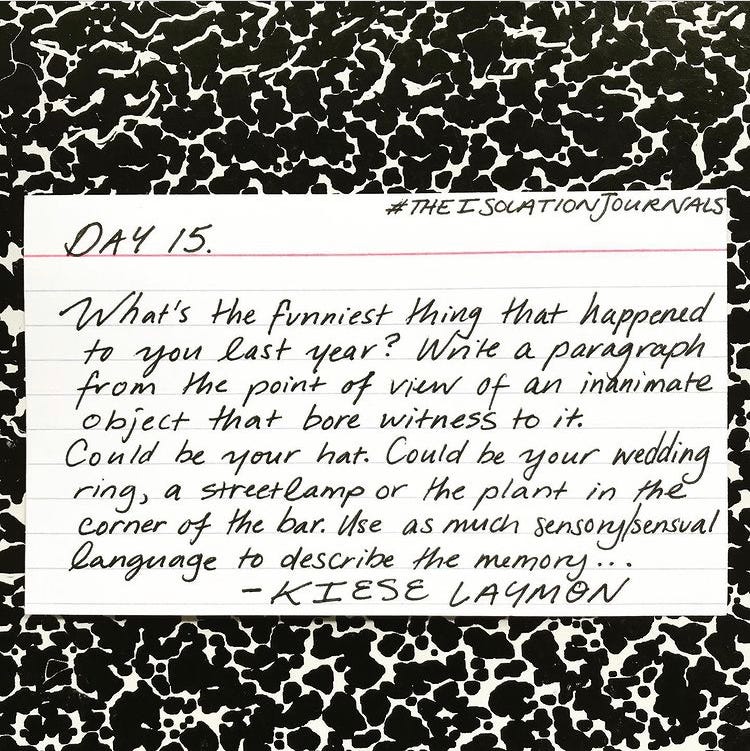 #THEISOLATIONJOURNALS
DAY 15.
What's the funniest thing that happened
to you last year? Write a paragraph
from the point of view of an inanimate
object that bore witness to it.
Could be your hat. Could be your wedding
ring, a streetlamp or the plant in the
corner of the bar. Use as much sensory/sensual
language to describe the memory...
- KIESE LAYMON